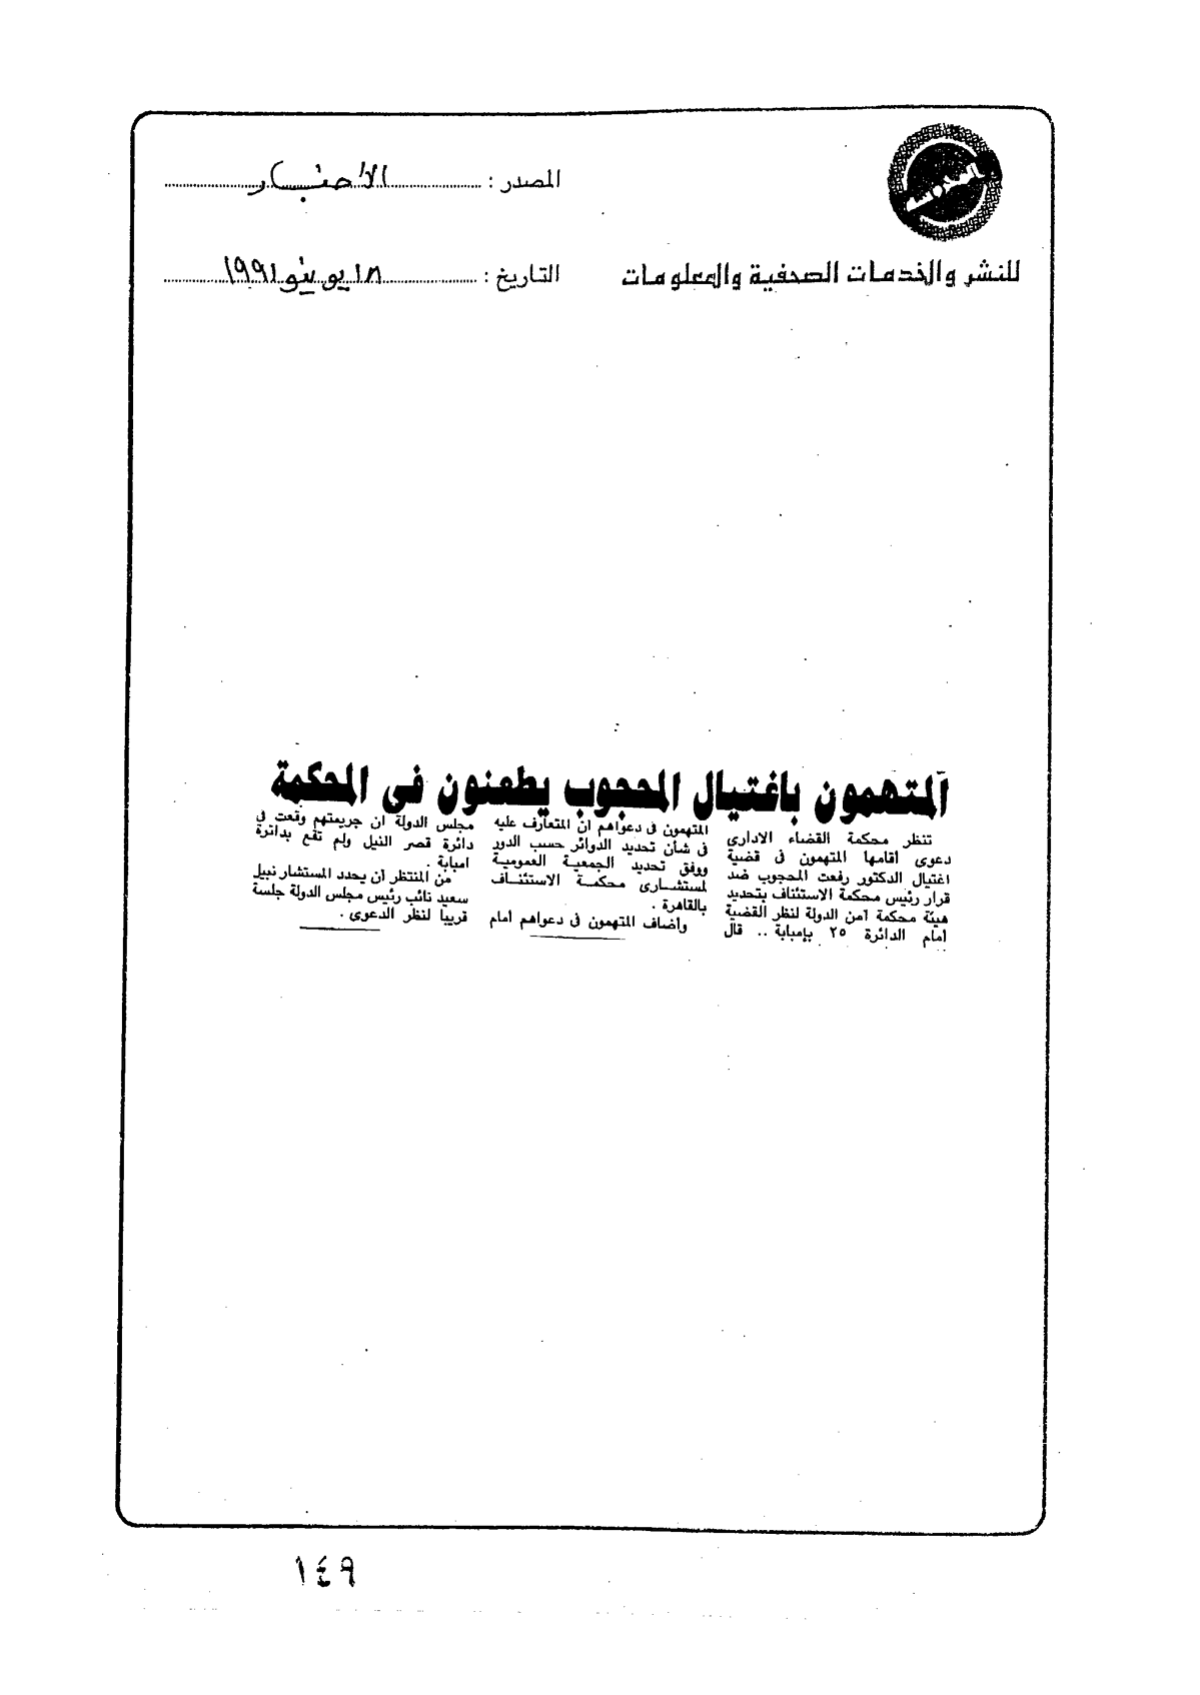 المصدر : الأخبار
للنشر والخدمات الصحفية والمعلومات
التاريخ : ١٨ يونيو ١٩٩١
المتهمون باغتيال المحجوب يطعنون فى المحكمة
تنظر محكمة القضاء الادارى
دعوى أقامها المتهمون فى قضية
اغتيال الدكتور رفعت المحجوب ضد
قرار رئيس محكمة الاستئناف بتحديد
هيئة محكمة أمن الدولة لنظر القضية
أمام الدائرة ٢٥ بإمبابة .. قال
المتهمون فى دعواهم ان المتعارف عليه
فى شأن تحديد الدوائر حسب الدور
ووفق تحديد الجمعية العمومية
لمستشارى محكمة الاستئناف
بالقاهرة .
وأضاف المتهمون فى دعواهم أمام
مجلس الدولة ان جريمتهم وقعت فى
دائرة قصر النيل ولم تقع بدائرة
امبابة .
من المنتظر أن يحدد المستشار نبيل
سعيد نائب رئيس مجلس الدولة جلسة
قريبا لنظر الدعوى .
١٤٩